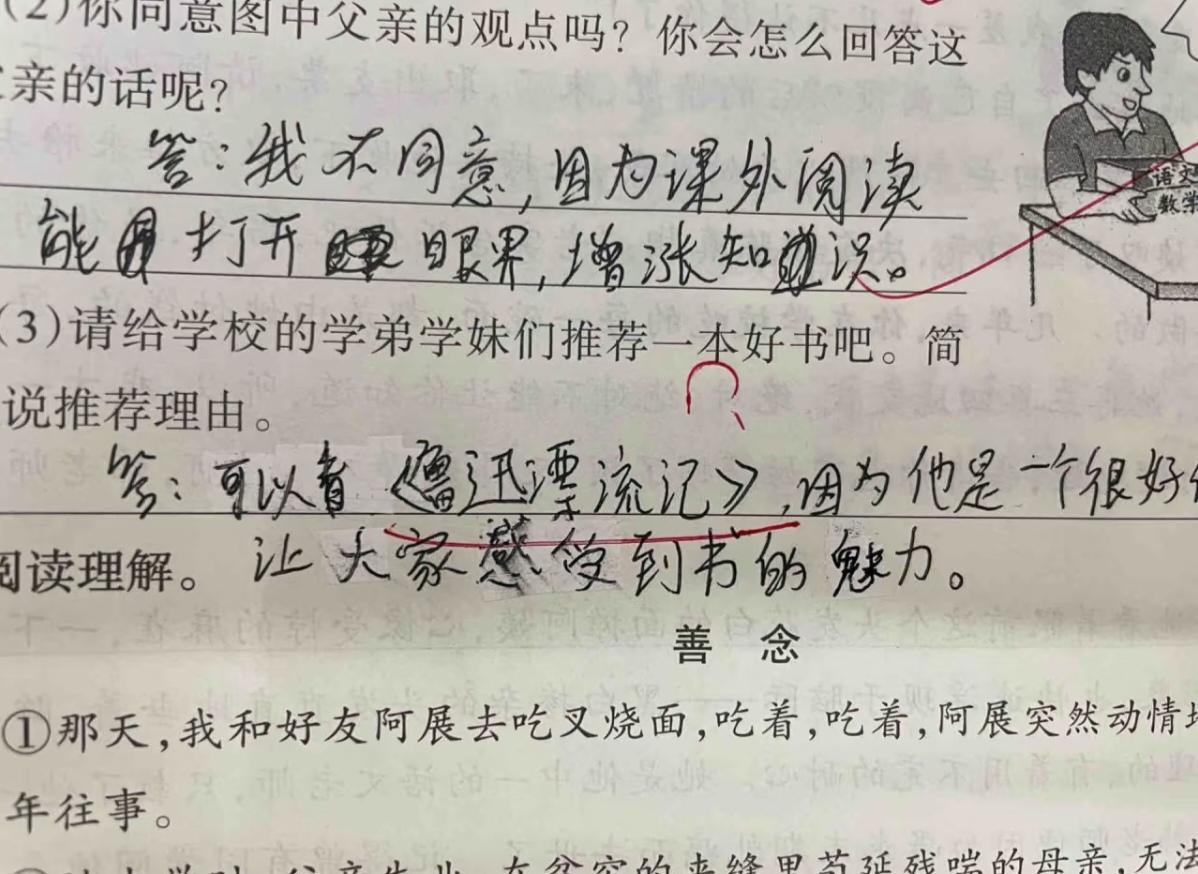 (2)你同意图中父亲的观点吗？你会怎么回答这
亲的话呢？
语文
数学
答：我不同意，因为课外阅读
能打开眼界，增涨知识。
(3)请给学校的学弟学妹们推荐一本好书吧。简
说推荐理由。
答：可以看《鲁迅漂流记》，因为他是一个很好
阅读理解。 让大家感受到书的魅力。
善 念
①那天，我和好友阿展去吃叉烧面，吃着，吃着，阿展突然动情地
年往事。
在贫穷的夹缝里苟延残喘的母亲，无法